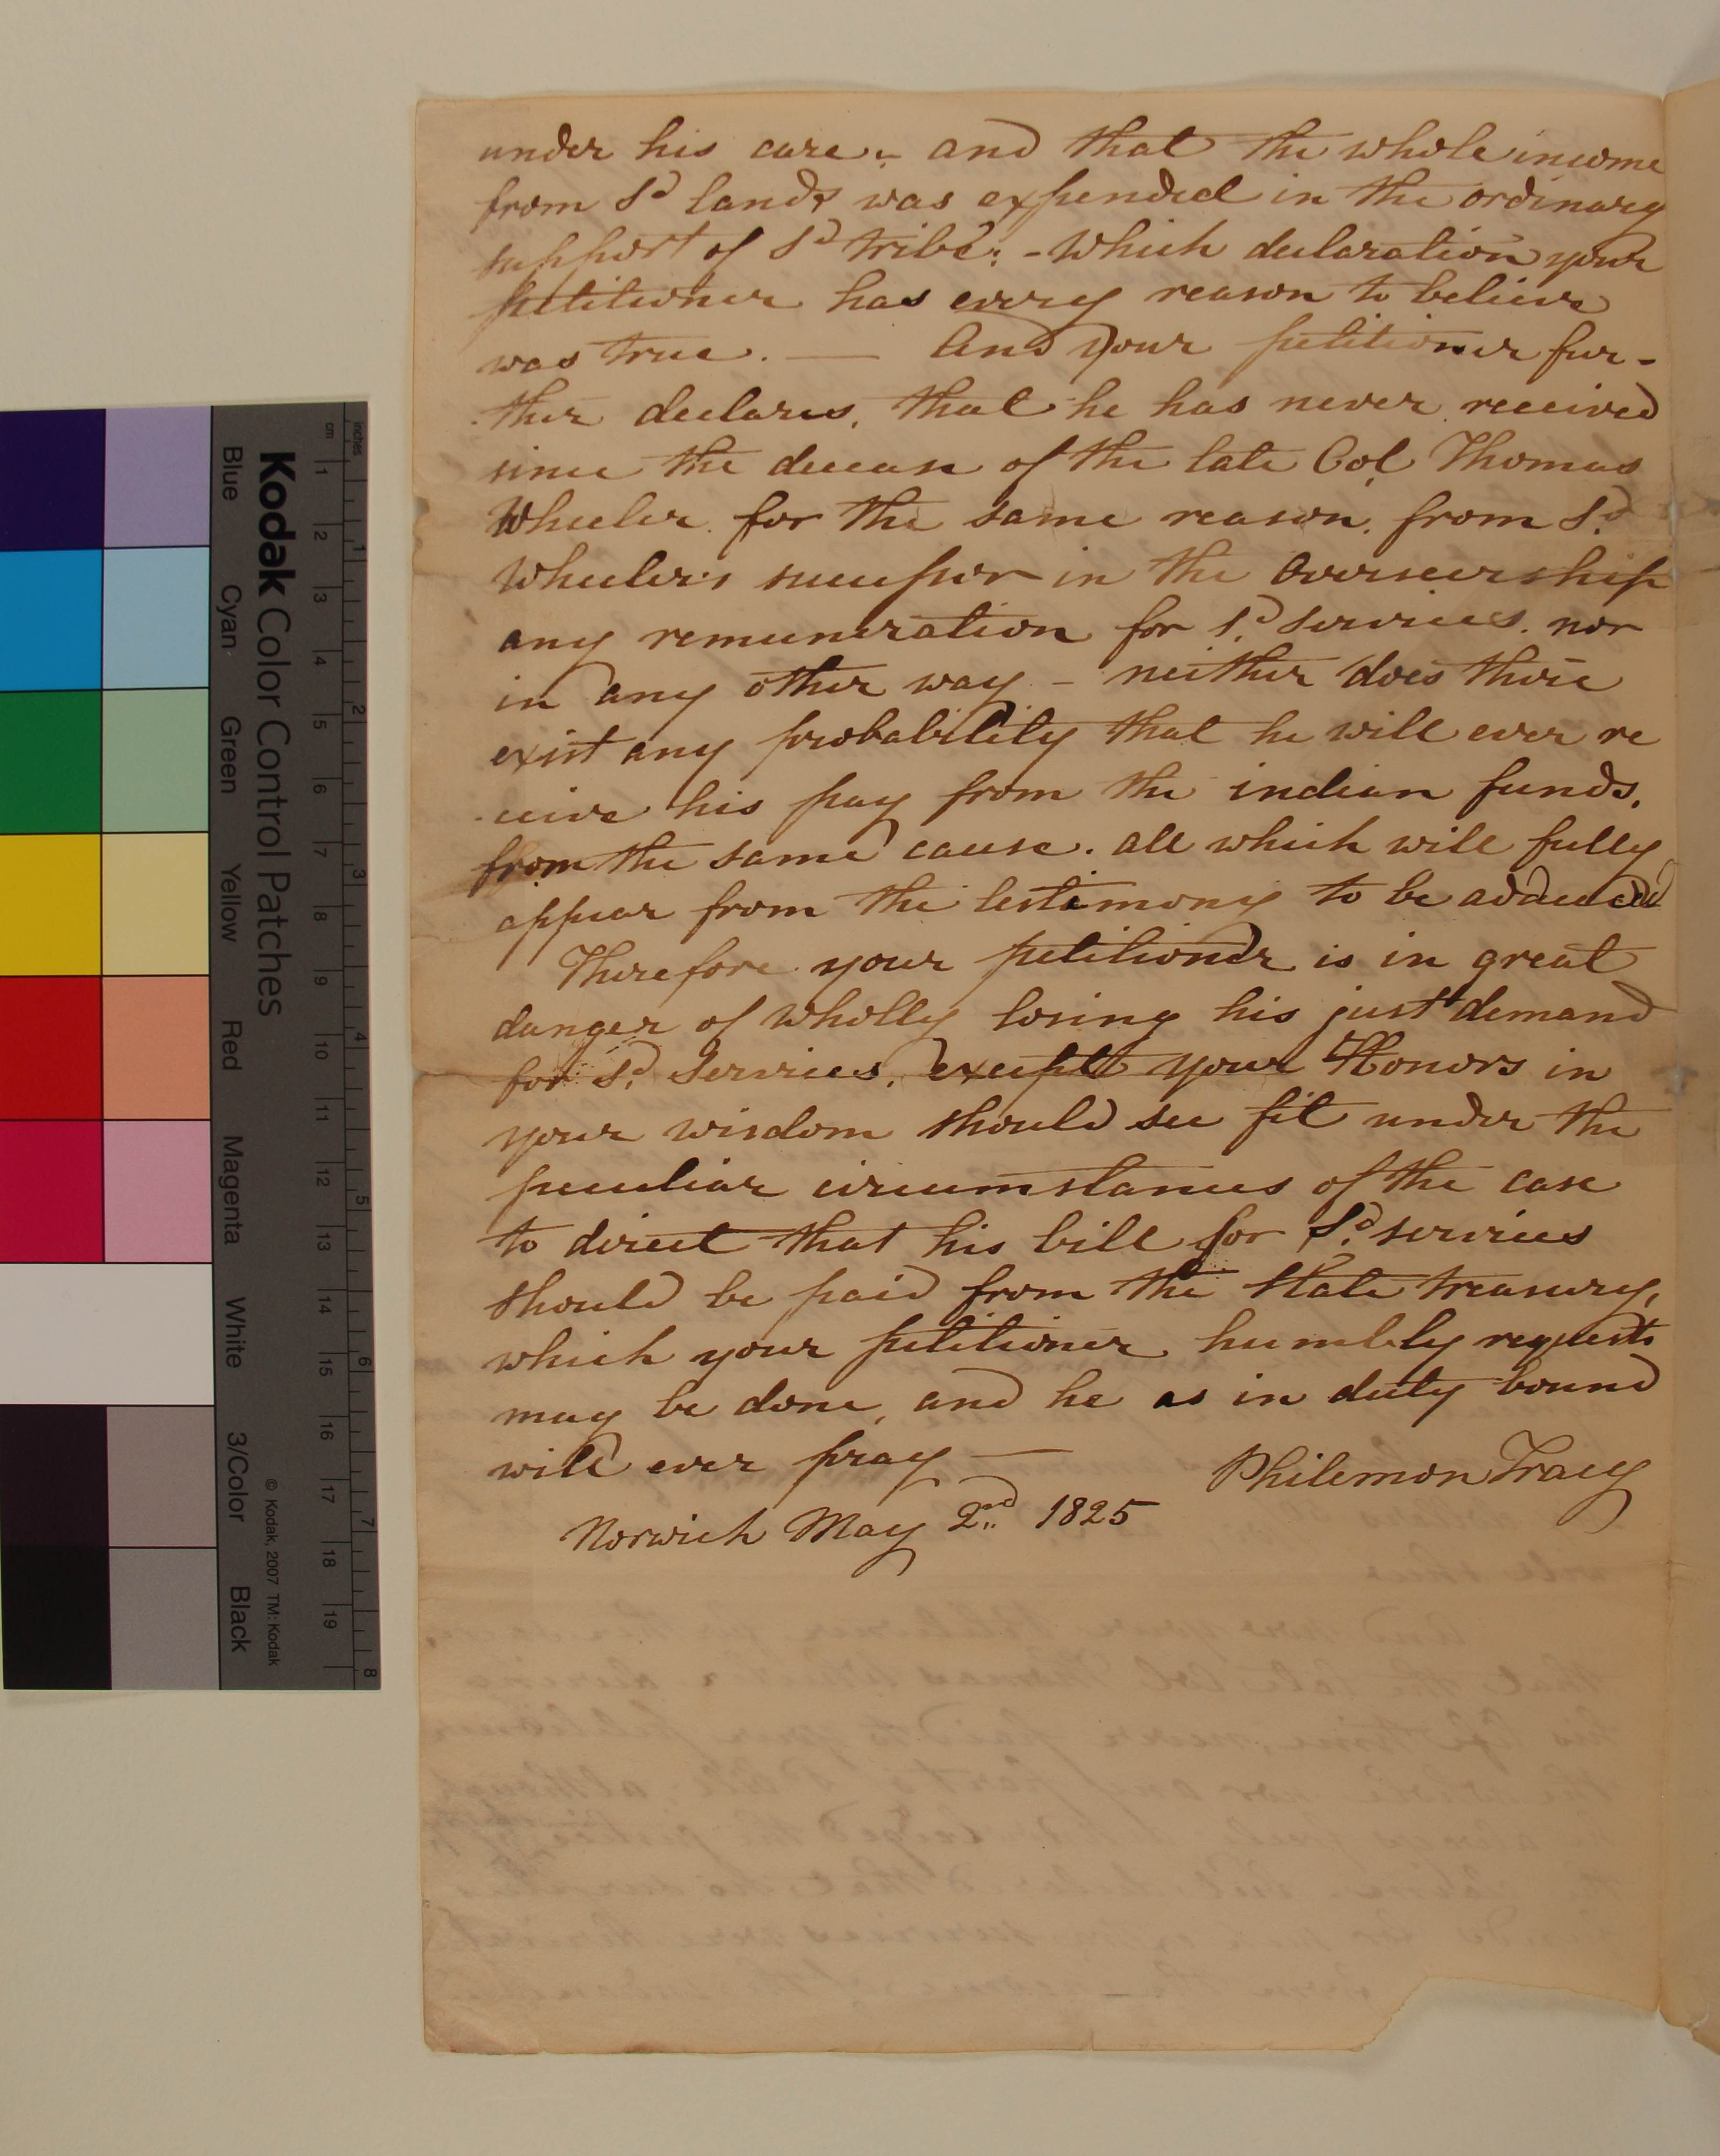 under his care :- and that the whole income
from Sd lands was expended in the ordinary
support of Sd tribe: - which declaration your
petitioner has every reason to believe
was true. — And your petitioner fur-
-ther declares, that he has never received
since the decease of the late Col. Thomas
Wheeler for the same reason, from Sd
Wheeler's successor in the Overseership
any remuneration for sd services. nor
in any other way - neither does there
exist any probability that he will ever re
-ceive his pay from the indian funds,
from the same cause. all which will fully
appear from the testimony to be adduced
Therefore your petitioner is in great
danger of wholly losing his just demand
for Sd Services, except your Honors in
your wisdom should see fit under the
peculiar circumstances of the case
to direct that his bill for Sd services
should be paid from the State treasury,
which your petitioner humbly requests
may be done, and he as in duty bound
will ever pray —
Philemon Tracy
Norwich May 2nd 1825
Kodak Color Control Patches
Blue Cyan Green Yellow Red Magenta White 3/Color Black
© Kodak, 2007 TM: Kodak
cm 1 2 3 4 5 6 7 8 9 10 11 12 13 14 15 16 17 18 19
inches 1 2 3 4 5 6 7 8